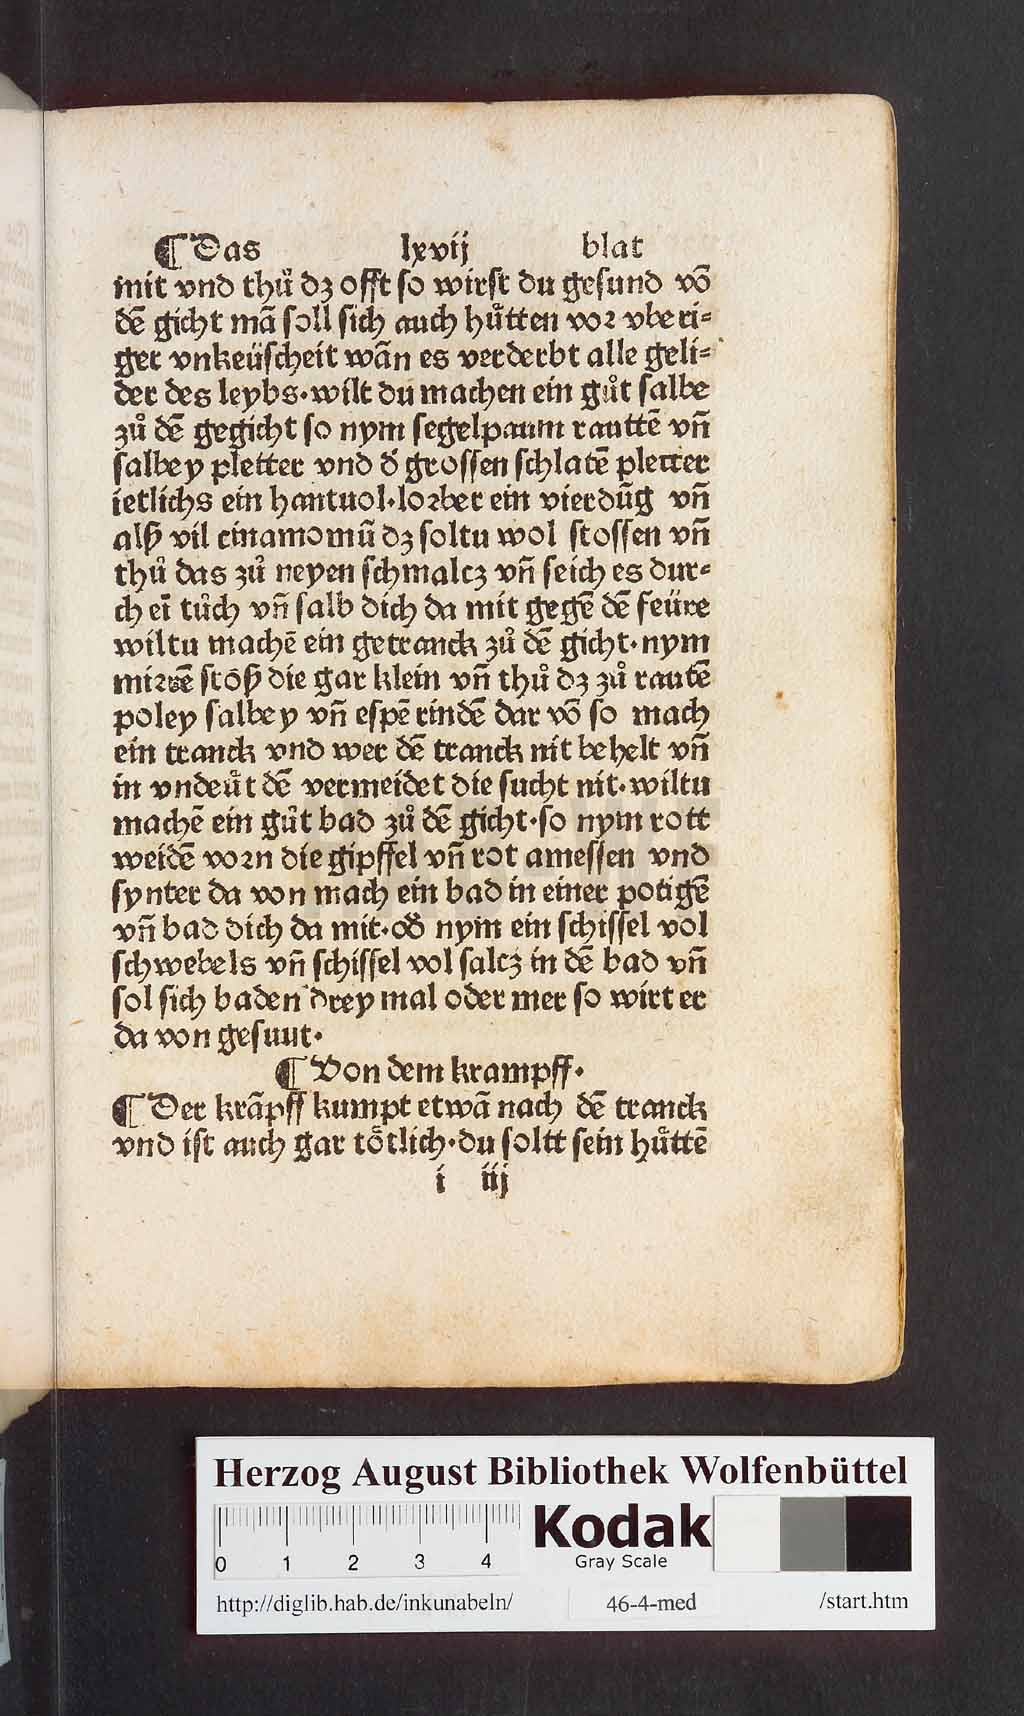 ¶ Das lxvij blat
mit vnd thuͦ dz offt so wirst du gesund võ
dẽ gicht mã soll sich auch huͤtten vor vberi⸗
ger vnkeüscheit wãn es verderbt alle geli⸗
der des leybs·wilt du machen ein guͦt salbe
zuͦ dẽ gegicht so nym segelpaum rauttẽ vñ
salbey pletter vnd d᷑ grossen schlatẽ pletter
ietlichs ein hantuol·lorber ein vierdũg vñ
alß vil cinamomũ dz soltu wol stossen vñ
thuͦ das zuͦ neyen schmalcz vñ seich es dur⸗
ch eĩ tuͦch vñ salb dich da mit gegẽ dẽ feüre
wiltu machẽ ein getranck zuͦ dẽ gicht·nym
mirrẽ stöß die gar klein vñ thuͦ dz zuͦ rautẽ
poley salbey vñ espẽ rindẽ dar võ so mach
ein tranck vnd wer dẽ tranck nit behelt vñ
in vndeuͤt dẽ vermeidet die sucht nit·wiltu
machẽ ein guͦt bad zuͦ dẽ gicht·so nym rott
weidẽ vorn die gipffel vñ rot amessen vnd
synter da von mach ein bad in einer potigẽ
vñ bad dich da mit·od᷑ nym ein schissel vol
schwebels vñ schissel vol salcz in dẽ bad vñ
sol sich baden drey mal oder mer so wirt er
da von gesuut·
¶ Von dem krampff·
¶ Der krãpff kumpt etwã nach dẽ tranck
vnd ist auch gar toͤtlich·du soltt sein huͤttẽ
i iij
Herzog August Bibliothek Wolfenbüttel
0 1 2 3 4
Kodak
Gray Scale
http://diglib.hab.de/inkunabeln/ 46-4-med /start.htm